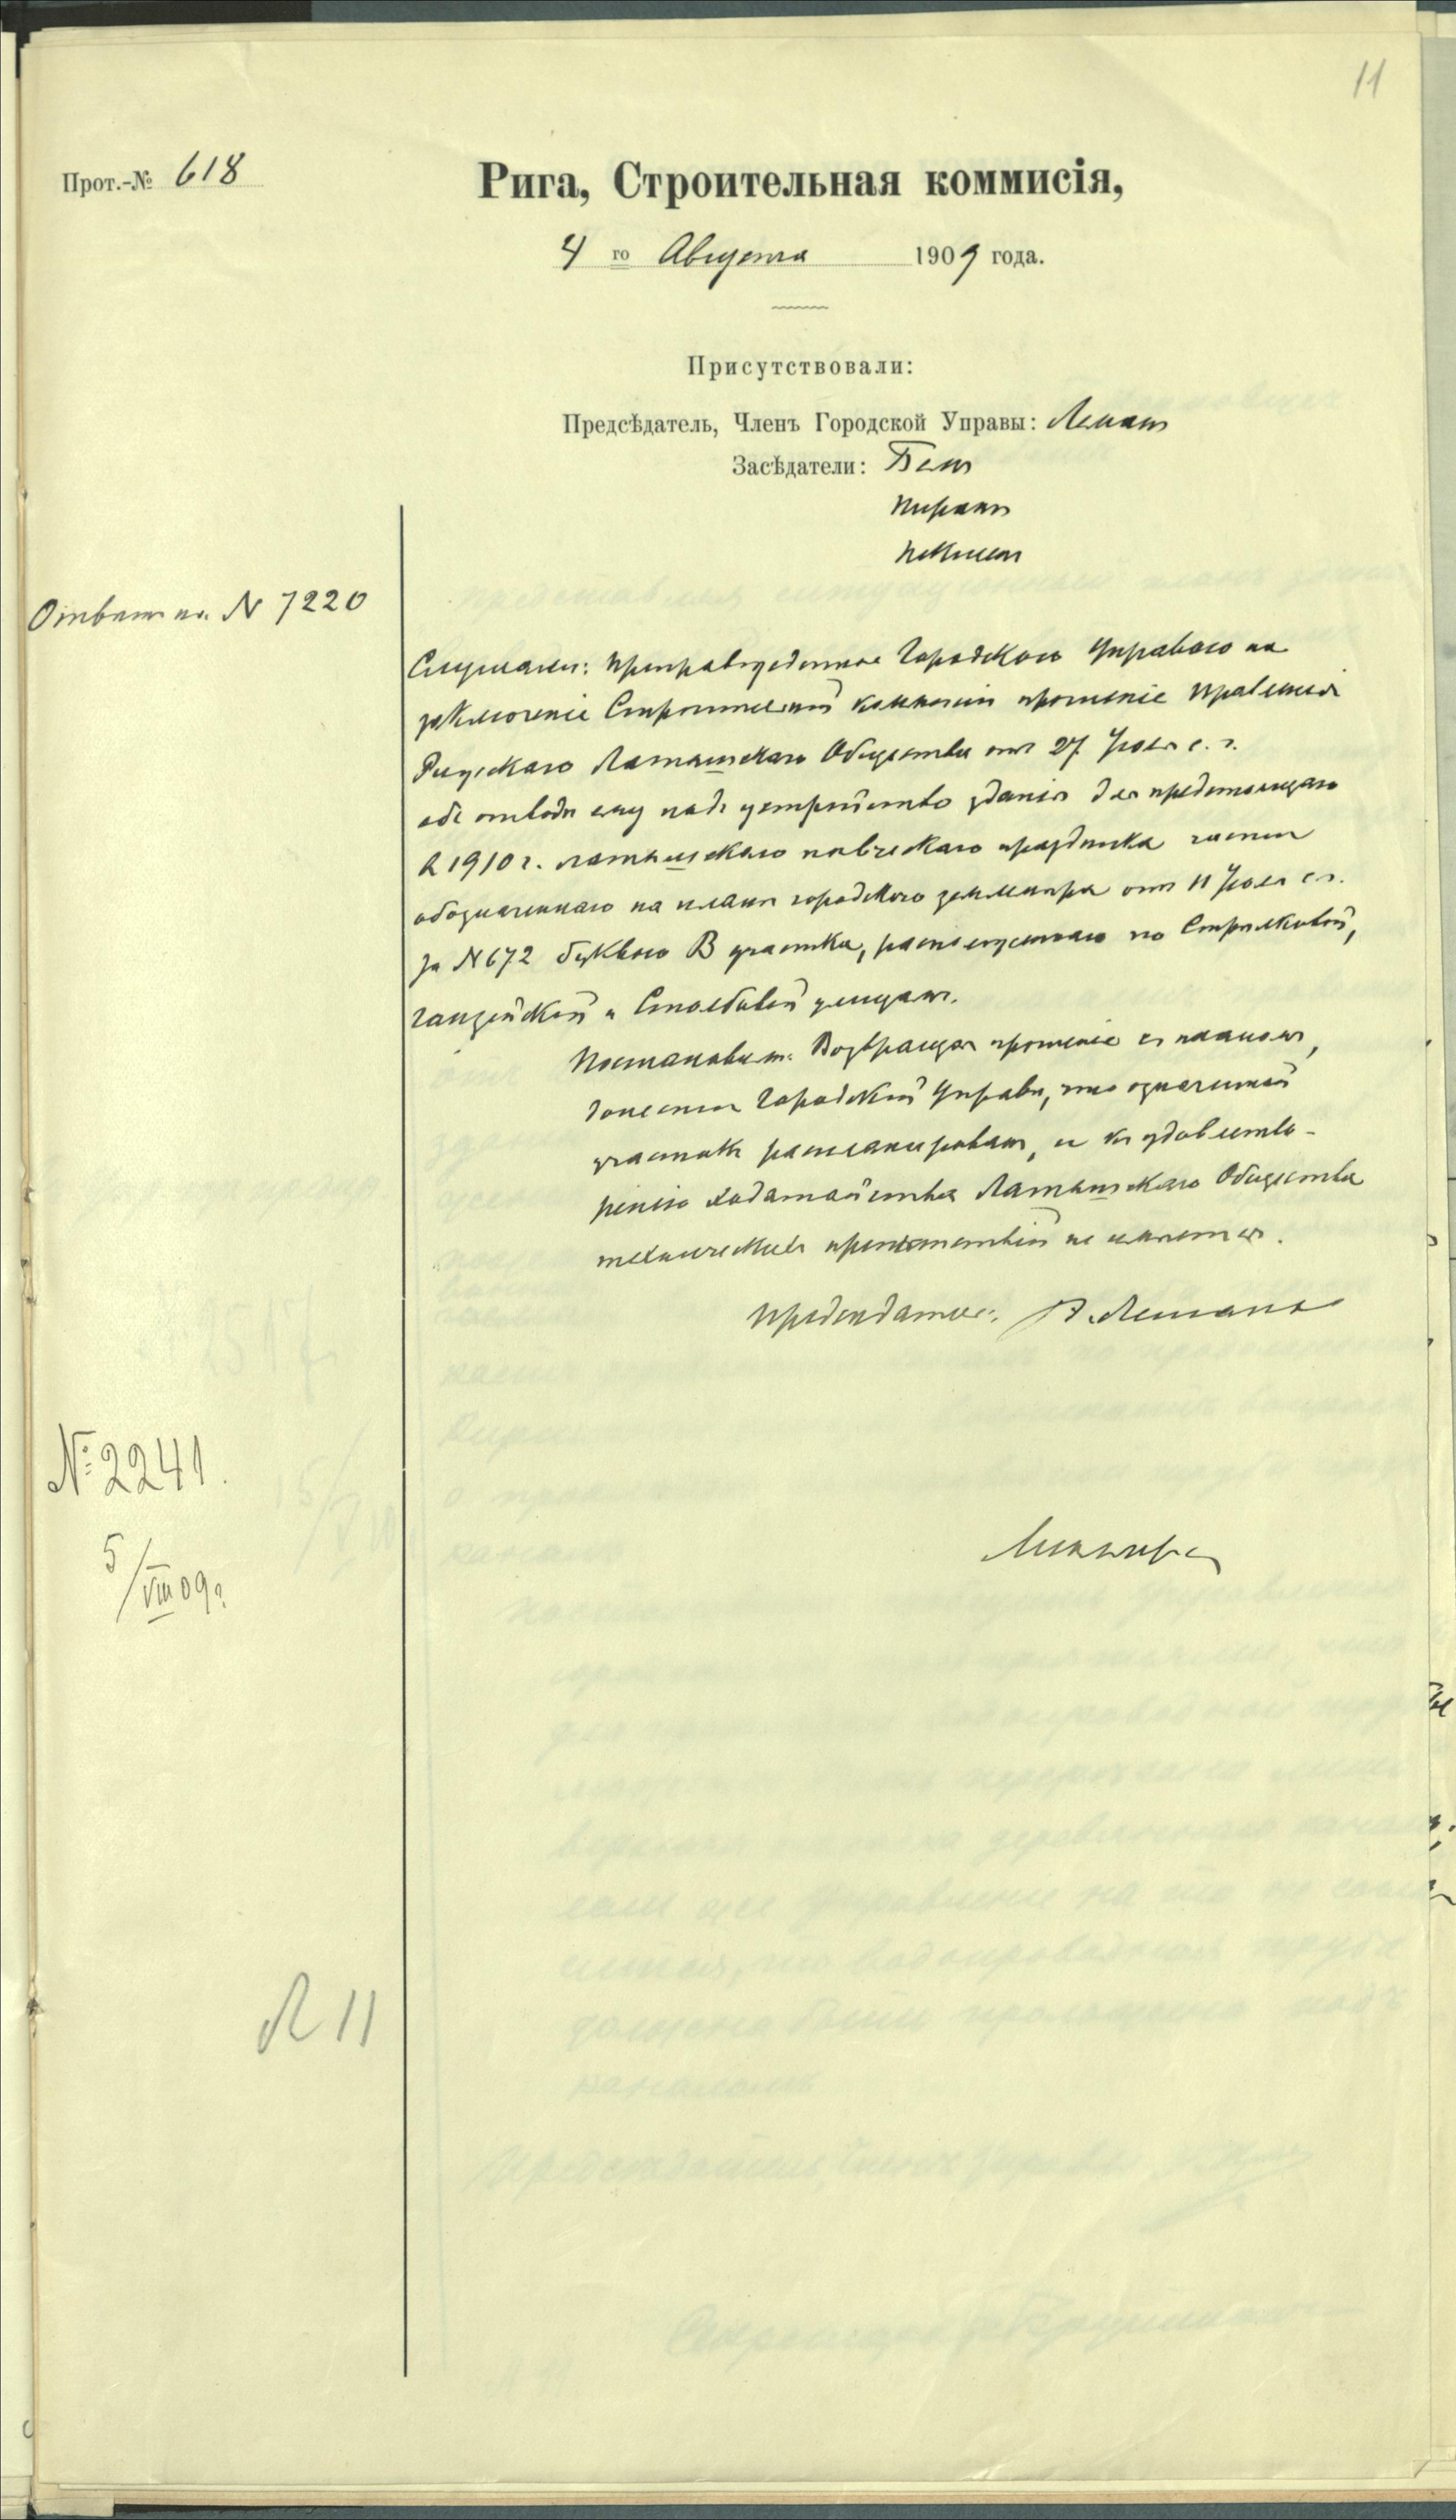 11
Прот.-№ 618
Рига, Строительная коммисія,
4 го Августа 1909 года.
Присутствовали:
Предсѣдатель, Членъ Городской Управы: Леманъ
Засѣдатели: Бетъ
Пиранъ
Отвѣтъ на N 7220
Слушали: препровожденное Городскою Управою на
заключеніе Строительной коммисіи прошеніе правленія
Рижскаго Латышскаго Общества отъ 27 Іюля с. г.
объ отводѣ ему подъ устройство зданія для предстоящаго
въ 1910 г. латышскаго пѣвческаго праздника части
обозначеннаго на планѣ городского землемѣра отъ 11 Іюля с. г.
за N 672 буквою В участка, расположеннаго по Стрѣлковой,
Ганзейской и Столбовой улицамъ.
Постановили: Возвращая прошеніе съ планомъ,
донести Городской Управѣ, что означенный
участокъ распланированъ, и къ удовлетво-
ренію ходатайства Латышскаго Общества
техническихъ препятствій не имѣется.
Предсѣдатель: А. Леманъ
№ 2241.
5/VIII 09 г.
Л 11